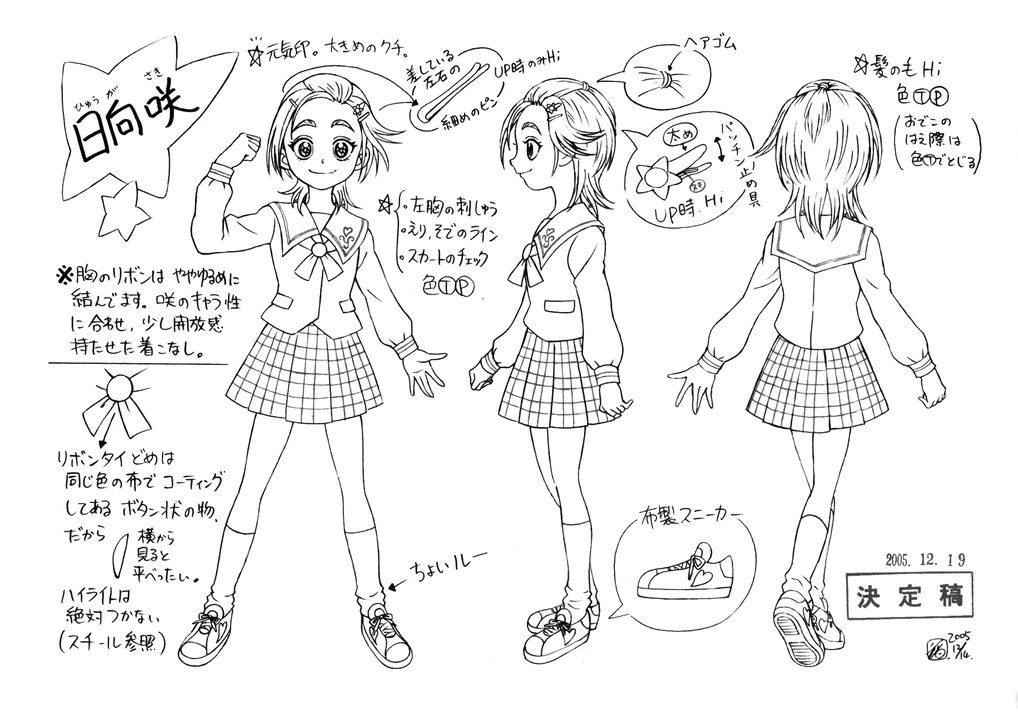 日向咲
ひゅうが
さき
☆元気印。大きめのクチ。
差している
左右の
細めのピン
UP時のみHi
ヘアゴム
☆髪のもHi
色ⓉⓅ
(おでこの
はえ際は
色Ⓣでとじる)
太め
パッチン止め具
UP時.Hi
☆
・左胸の刺しゅう
・えり、そでのライン
・スカートのチェック
色ⓉⓅ
※胸のリボンは ややゆるめに
結んでます。咲のキャラ性
に合わせ、少し開放感
持たせた着こなし。
リボンタイどめは
同じ色の布で コーティング
してある ボタン状の物、
だから
横から
見ると
平べったい。
ハイライトは
絶対つかない
(スチール参照)
ちょいルー
布製スニーカー
2005.12.19
決定稿
2005
12/14.